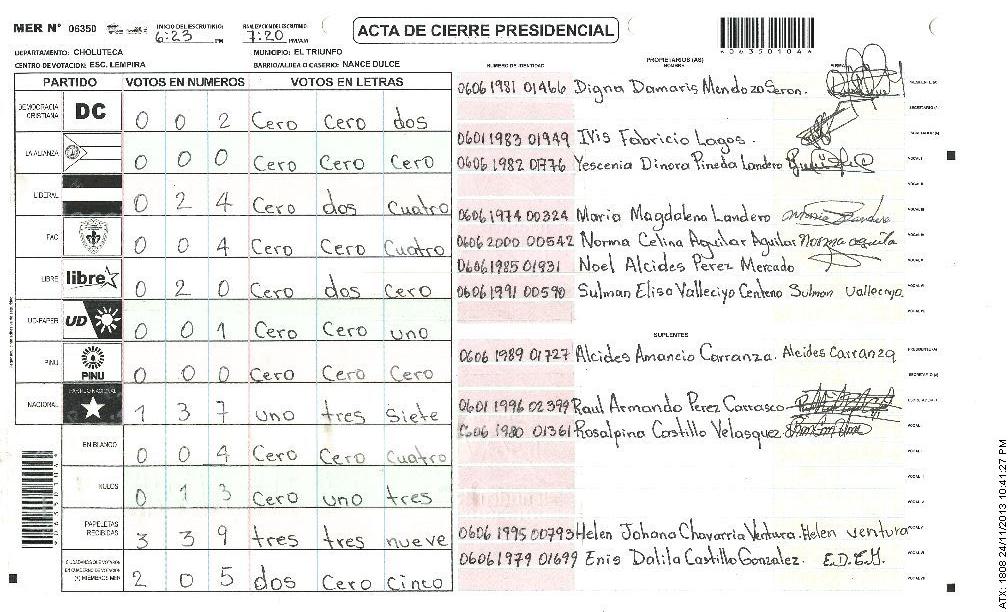 MER N° 06350
INICIO DEL ESCRUTINIO: 6:23 PM
FINALIZACION DEL ESCRUTINIO 7:20 PM/AM
ACTA DE CIERRE PRESIDENCIAL
063501044
DEPARTAMENTO: CHOLUTECA
MUNICIPIO: EL TRIUNFO
CENTRO DE VOTACION: ESC. LEMPIRA
BARRIO/ALDEA O CASERIO: NANCE DULCE
PARTIDO VOTOS EN NUMEROS VOTOS EN LETRAS
DEMOCRACIA CRISTIANA DC 0 0 2 Cero Cero dos
LA ALIANZA 0 0 0 Cero Cero Cero
LIBERAL 0 2 4 Cero dos Cuatro
FAC 0 0 4 Cero Cero Cuatro
LIBRE libre 0 2 0 Cero dos Cero
UD-FAPER UD 0 0 1 Cero Cero uno
PINU PINU 0 0 0 Cero Cero Cero
NACIONAL PARTIDO NACIONAL 1 3 7 uno tres Siete
EN BLANCO 0 0 4 Cero Cero Cuatro
NULOS 0 1 3 Cero uno tres
PAPELETAS RECIBIDAS 3 3 9 tres tres nueve
CIUDADANOS QUE VOTARON EN CUADERNO DE VOTACION (+) MIEMBROS MER 2 0 5 dos Cero Cinco
NUMERO DE IDENTIDAD PROPIETARIOS (AS) NOMBRE
0606 1981 01466 Digna Damaris Mendoza Seron.
0601 1983 01949 Ivis Fabricio Lagos.
0606 1982 01776 Yescenia Dinora Pineda Landero
0606 1974 00324 Maria Magdalena Landero
0606 2000 00542 Norma Celina Aguilar Aguilar Norma aguila
0606 1985 01931 Noel Alcides Perez Mercado
0606 1991 00590 Sulman Elisa Valleciyo Centeno Sulman Valleciyo
SUPLENTES
0606 1989 01727 Alcides Amancio Carranza. Alcides Carranza
0601 1996 02399 Raul Armando Perez Carrasco
0606 1980 01361 Rosalpina Castillo Velasquez
0606 1995 00793 Helen Johana Chavarria Ventura. Helen ventura
0606 1979 01699 Enis Dalila Castillo Gonzalez.
ATX: 1808 24/11/2013 10:41:27 PM